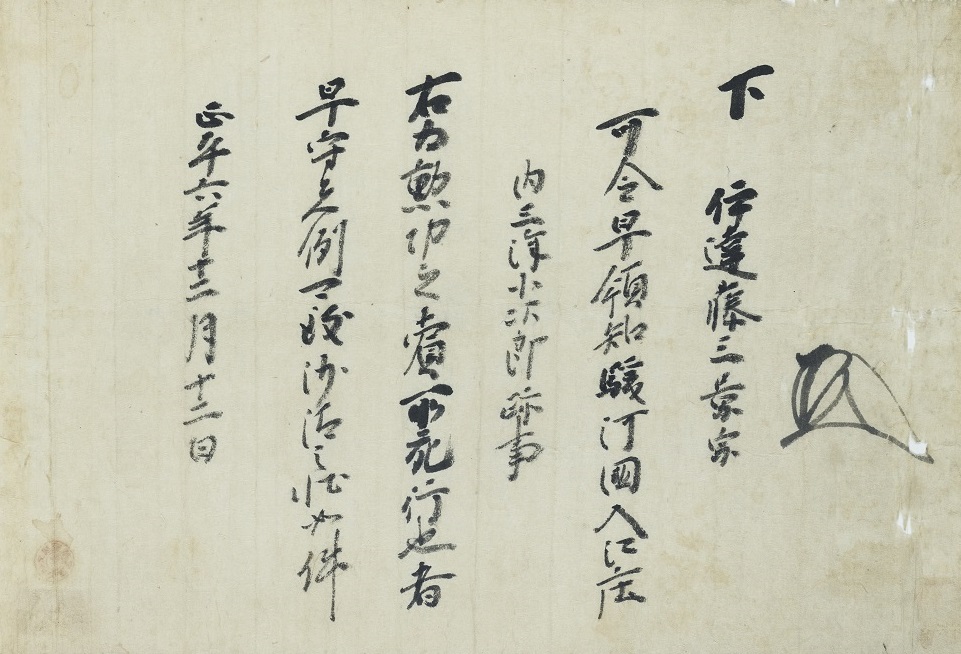 下 伊達藤三景宗
可令早領知駿河国入江庄
内三澤小次郎跡事
右為勲功之賞所宛行也者
早守先例可致沙汰之状如件
正平六年十二月十二日